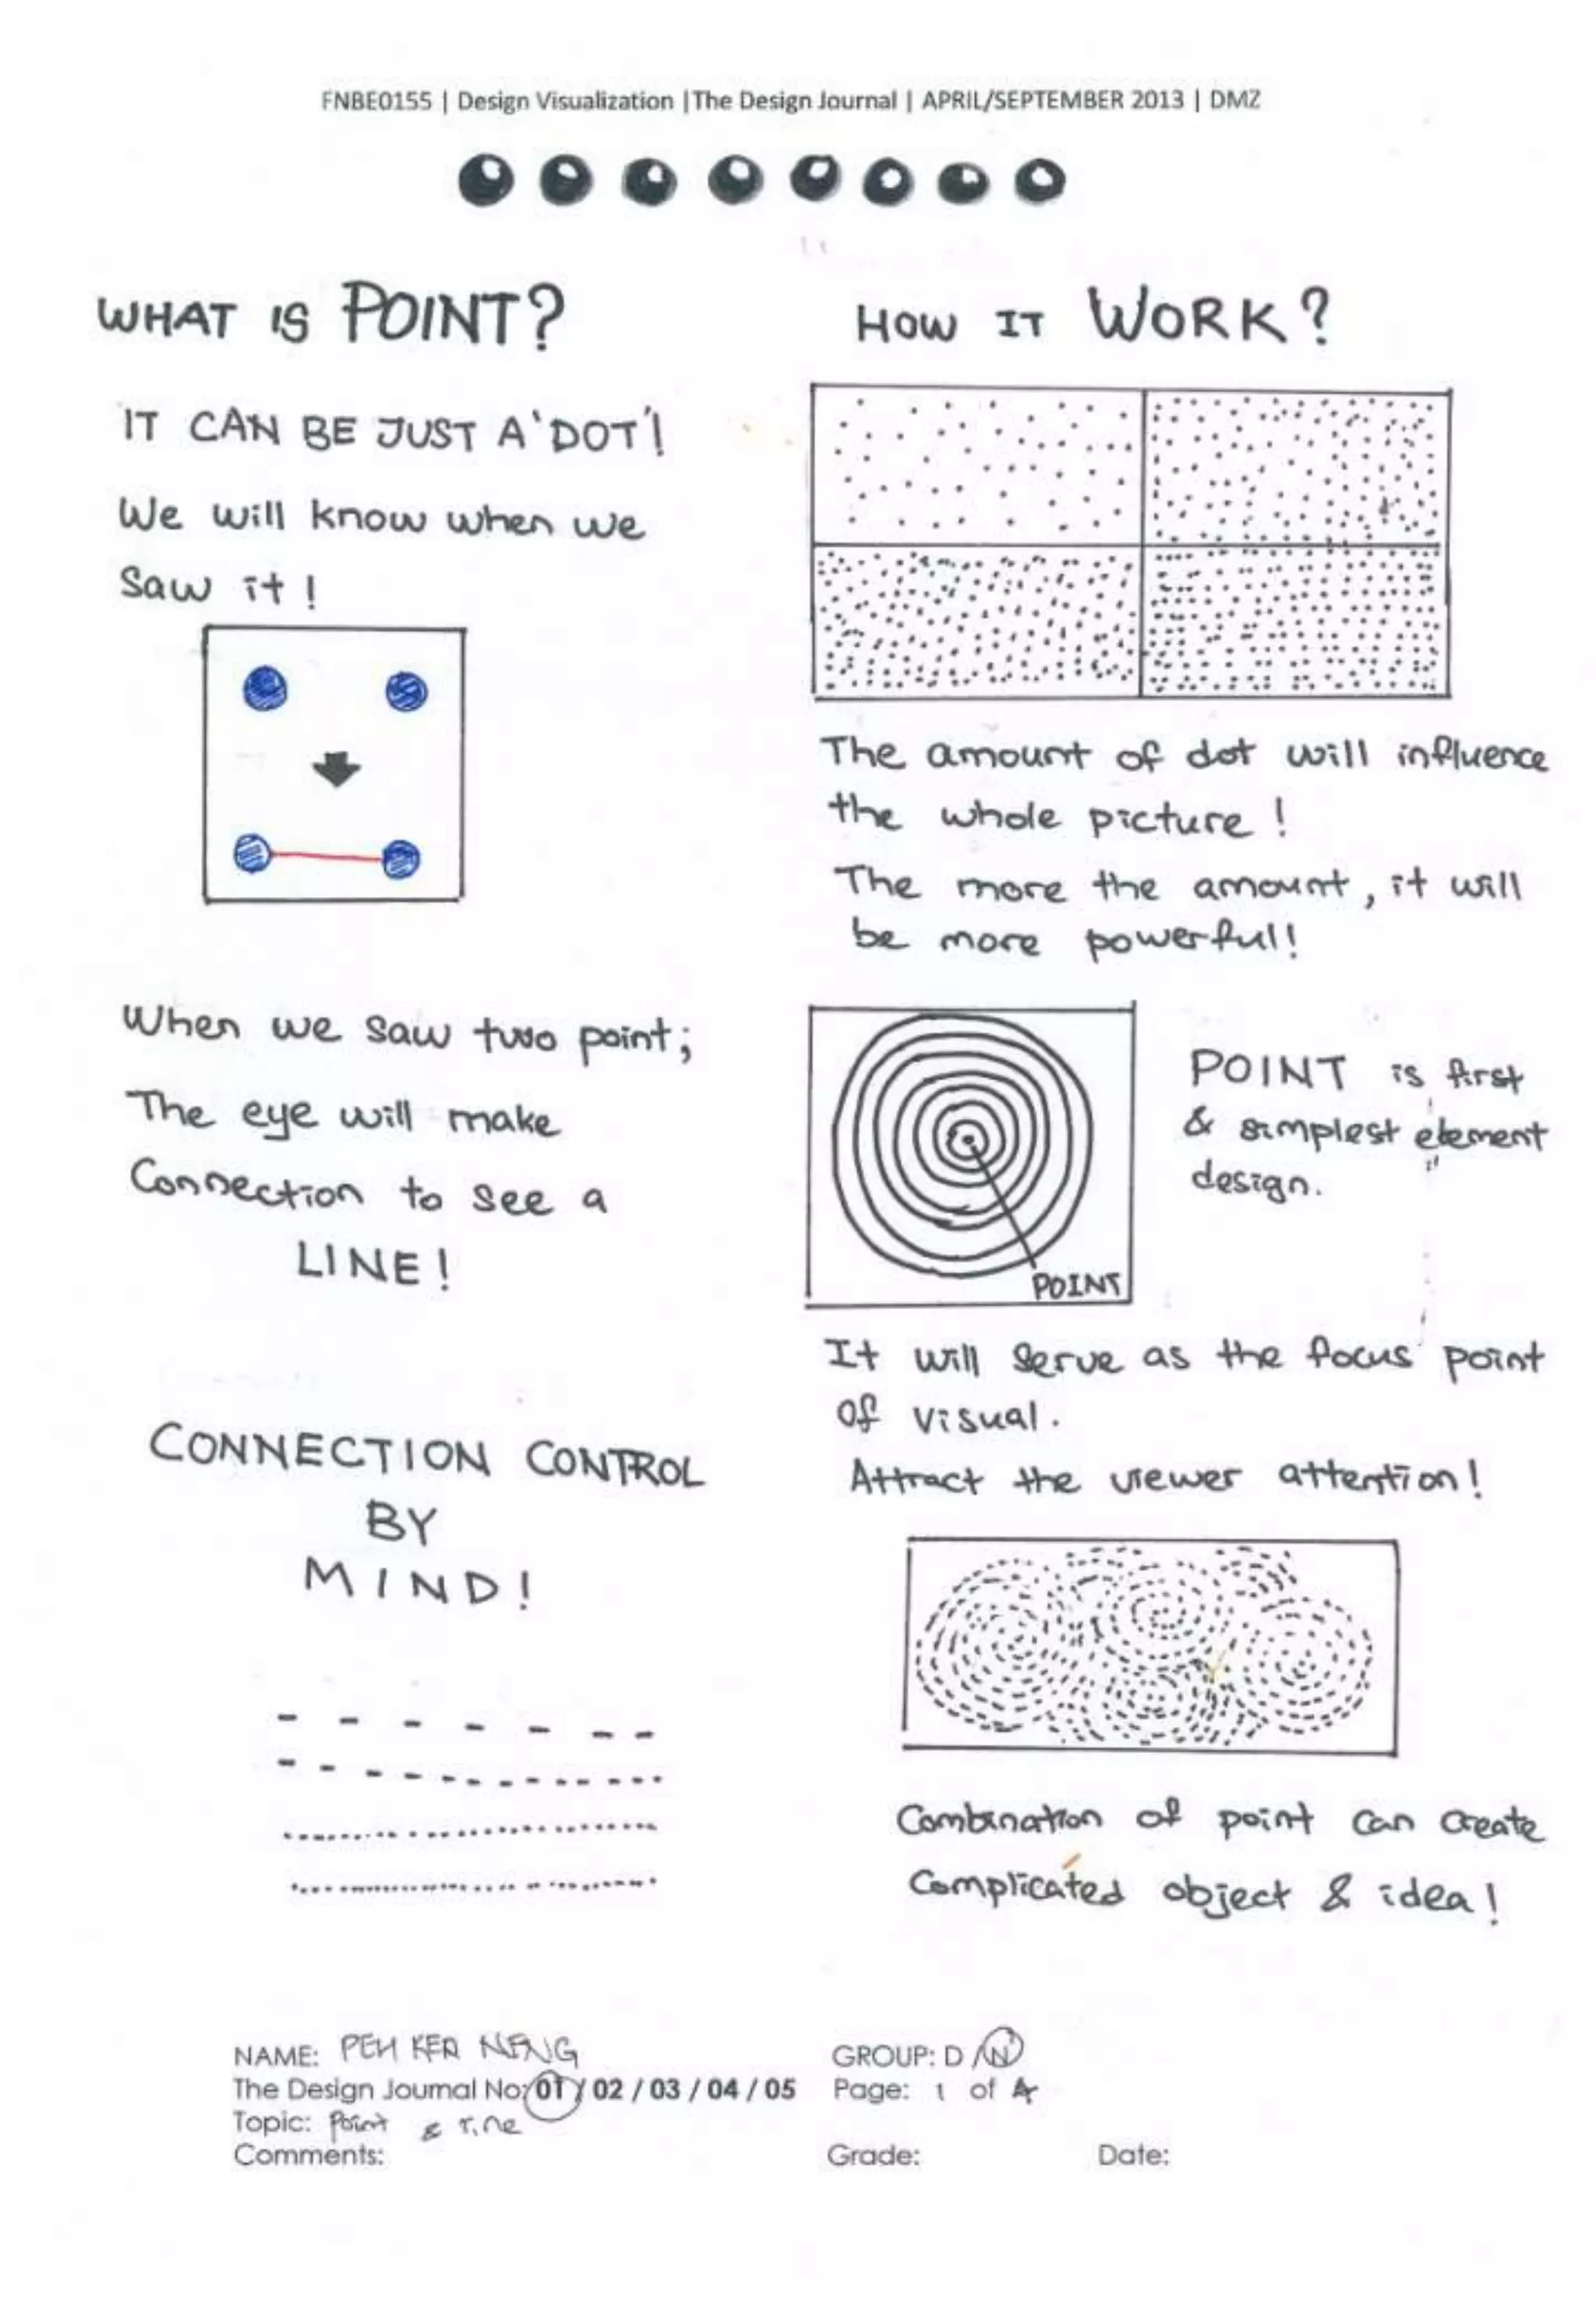 FNBE0155 | Design Visualization |The Design Journal | APRIL/SEPTEMBER 2013 | DMZ
WHAT IS POINT?
IT CAN BE JUST A 'DOT'!
We will know when we
Saw it!
When we saw two point;
The eye will make
Connection to see a
LINE!
CONNECTION CONTROL
BY
MIND!
HOW IT WORK?
The amount of dot will influence
the whole picture!
The more the amount, it will
be more powerful!
POINT
POINT is first
& simplest element
design.
It will serve as the focus point
of visual.
Attract the viewer attention!
Combination of point can create
Complicated object & idea!
NAME: PEH KER NENG
GROUP: D / N
The Design Journal No: 01 / 02 / 03 / 04 / 05
Page: 1 of 4
Topic: Point &
Comments:
Grade:
Date: